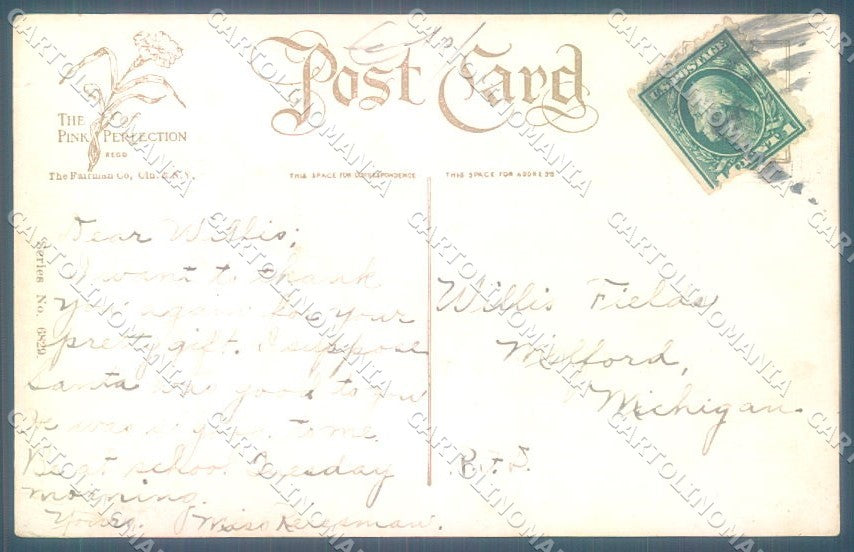 Post Card
THE
PINK PERFECTION
REGD
The Fairman Co, Cin. & N.Y.
THIS SPACE FOR CORRESPONDENCE
THIS SPACE FOR ADDRESS
U.S. POSTAGE
1 CENT 1
Series No. 6829.
Dear Willis;
I want to thank
you again for your
pretty gift. I suppose
Santa was good to you
He was to me.
school Tuesday
morning.
Yours, Miss
Willis Fields
Milford,
Michigan.
CARTOLINOMANIA